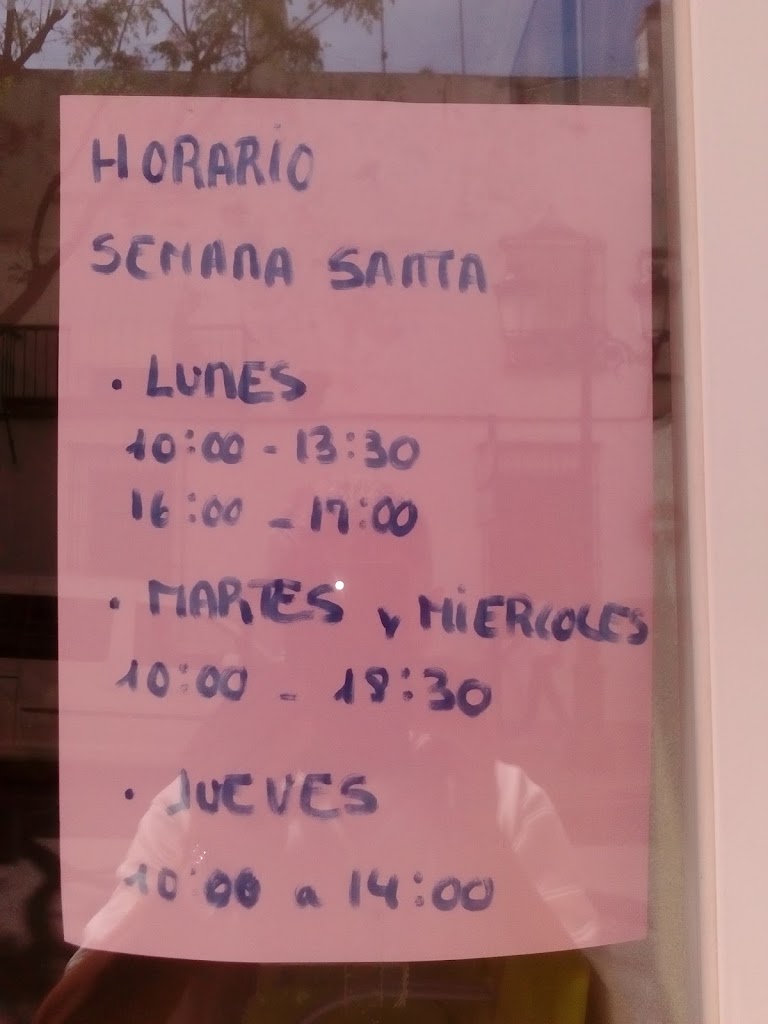 HORARIO
SEMANA SANTA
· LUNES
10:00 - 13:30
16:00 - 17:00
· MARTES y MIERCOLES
10:00 - 18:30
· JUEVES
10:00 a 14:00